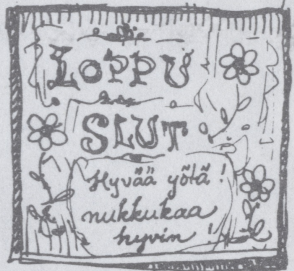 LOPPU
SLUT
Hyvää yötä!
nukkukaa
hyvin!